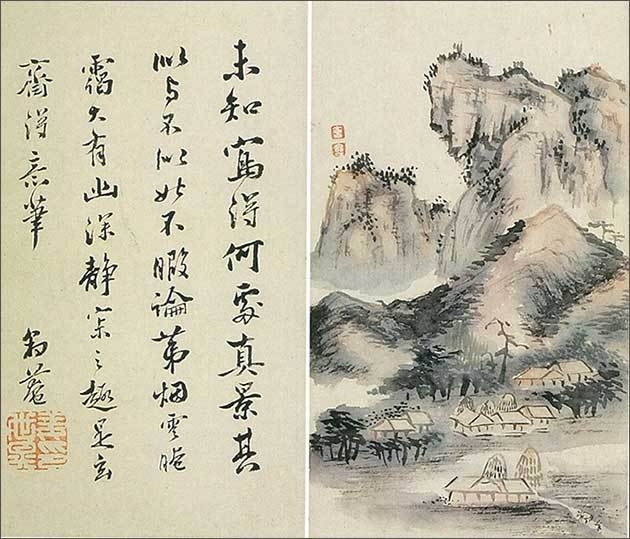 未知寫得何處真景其
似与不似此不暇論第烟雲晻
靄大有幽深靜寂之趣是玄
齋得意筆 豹菴